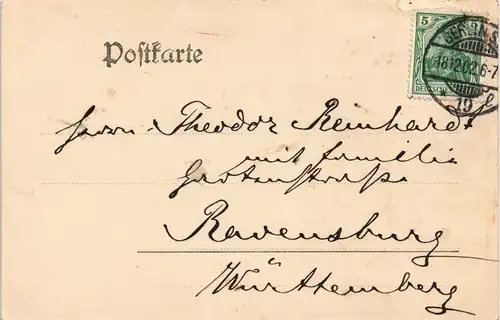 Postkarte
5
DEUTSCHES
BERLIN S.
18.12.02.6-7
19
Herrn Theodor Reinhardt
mit Familie
Ravensburg
Württemberg